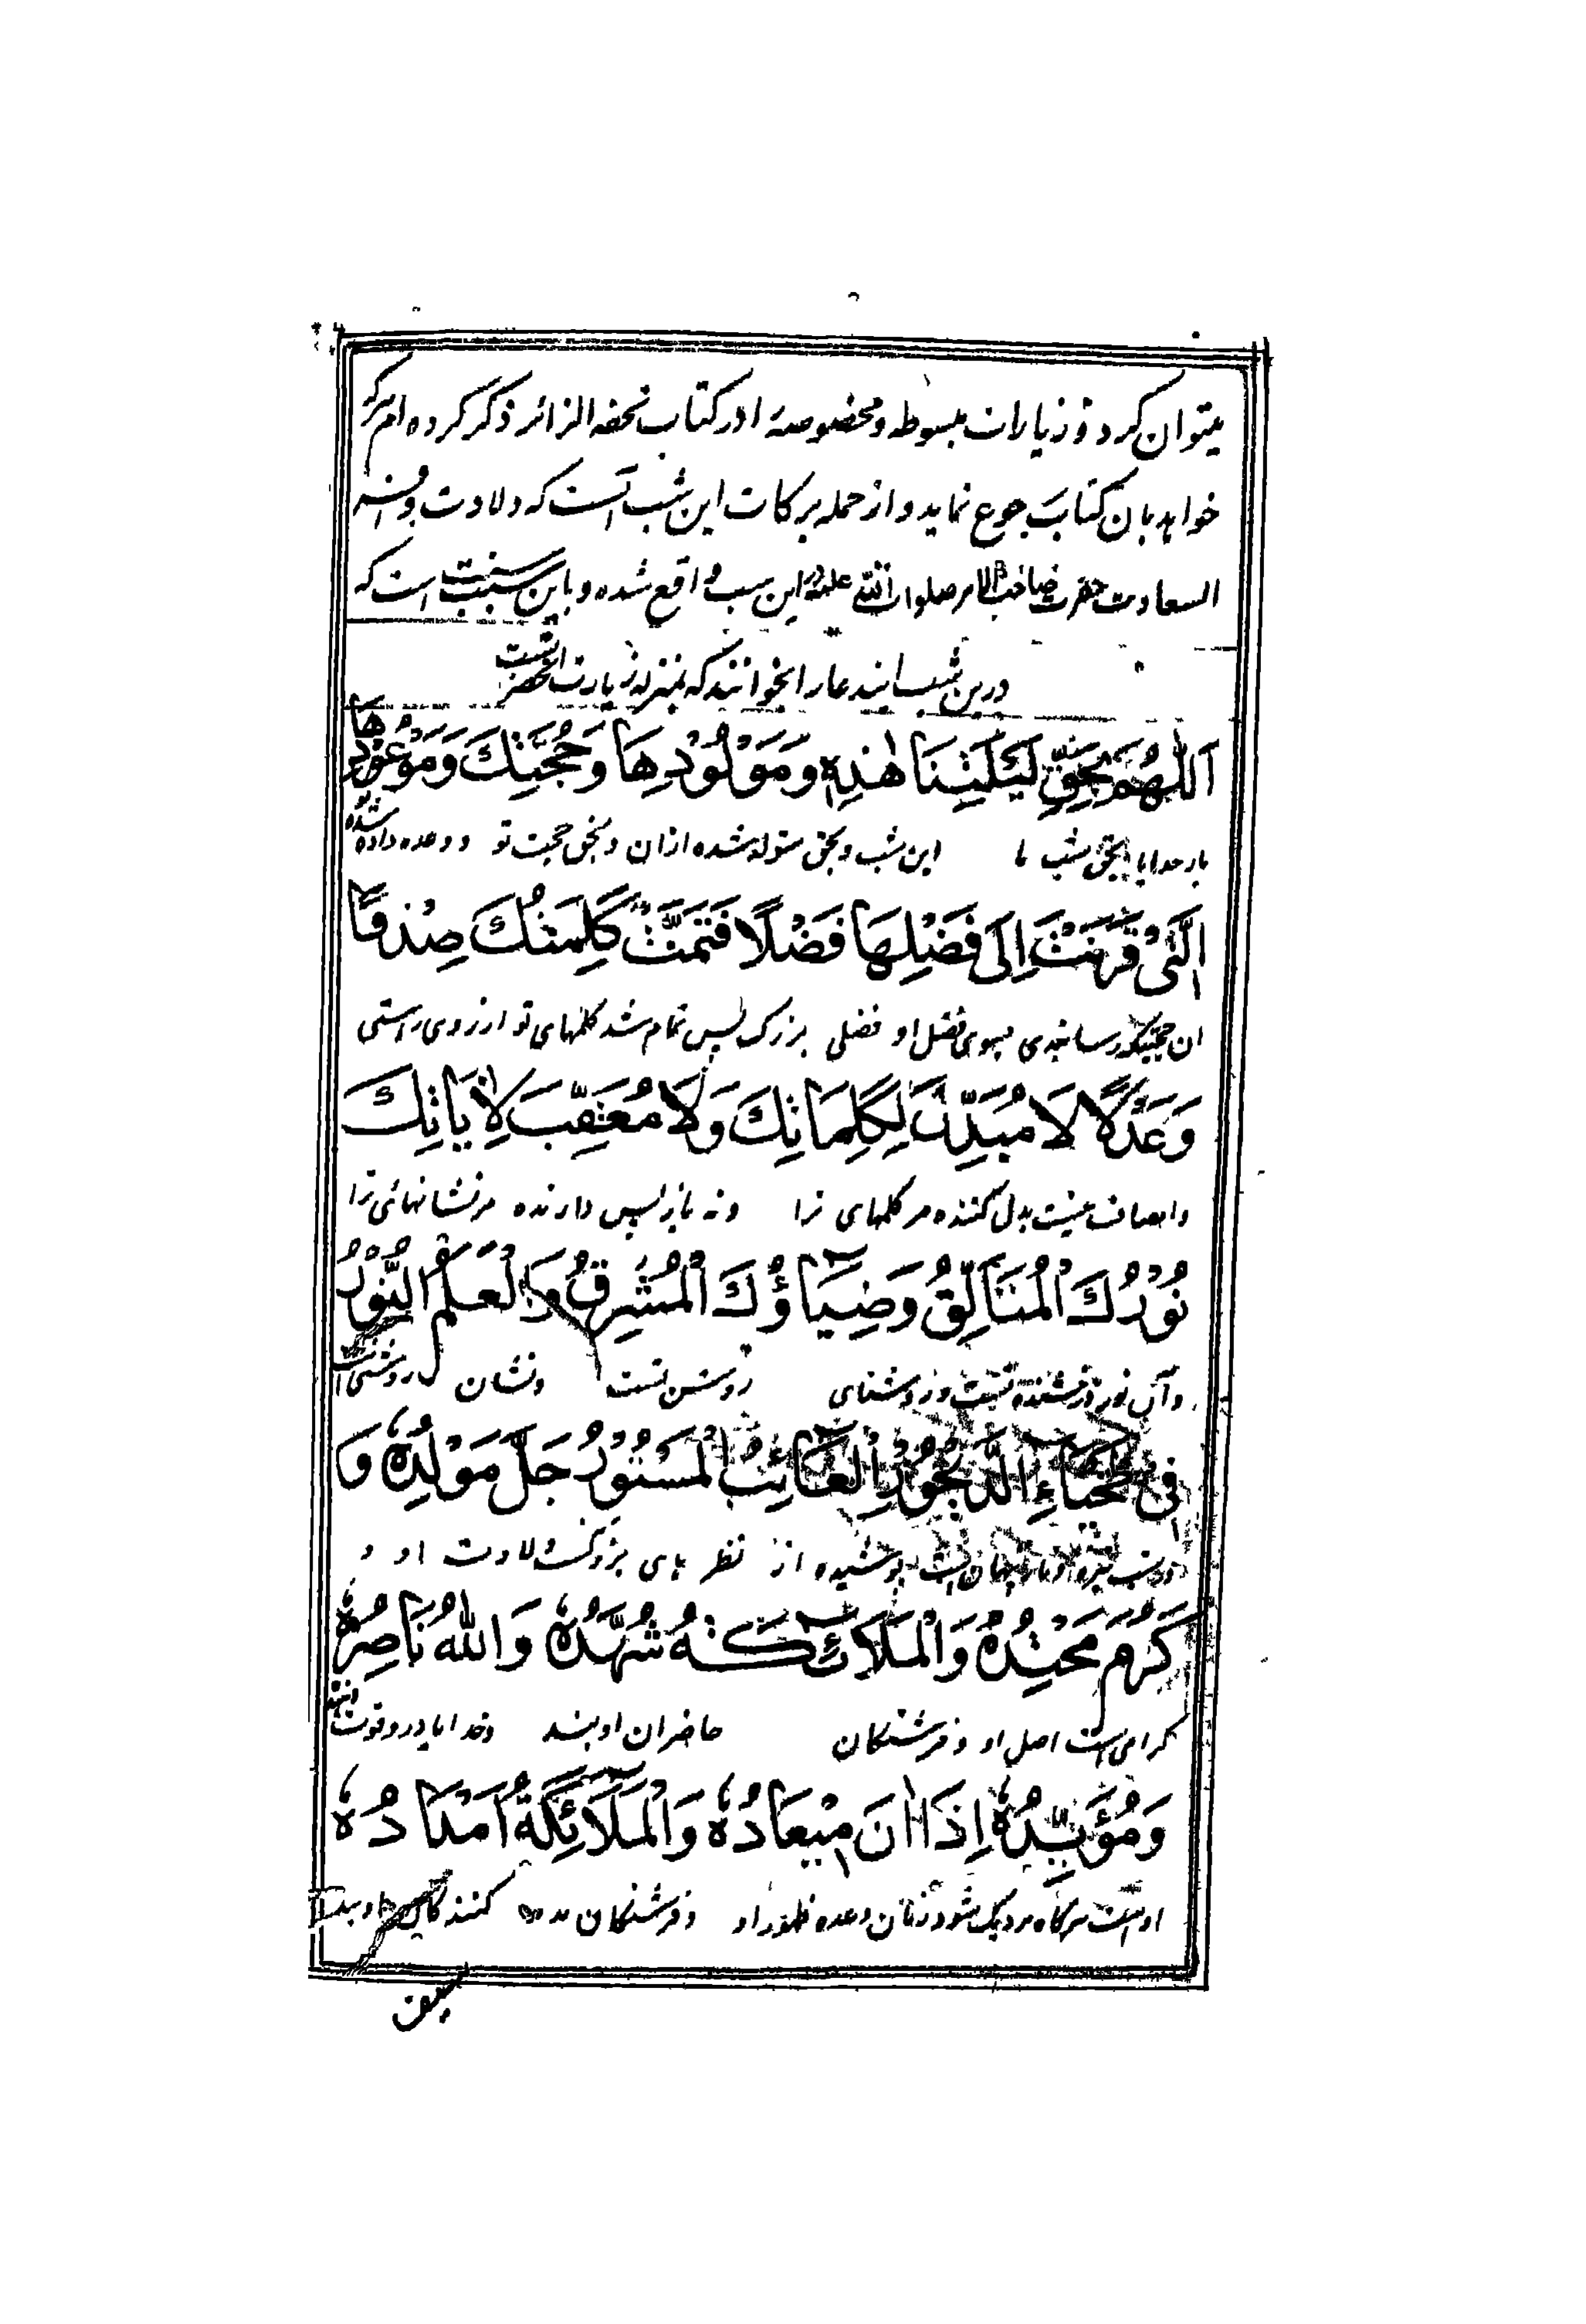 میتوان کرد و زیارات مبسوطه و مخصوصهٔ او در کتاب تحفه الزائر ذکر کرده ام هر که
خواهد بان کتاب رجوع نماید و از جمله برکات این شب آنست که ولادت وافر
السعادت حضرت صاحب الامر صلوات الله علیه در این شب واقع شده و باین سبب سنت است که
درین شب این دعا را بخوانند که بمنزله زیارت آنحضرتست
اَللّٰهُمَّ بِحَقِّ لَيْلَتِنَا هٰذِهِ وَ مَوْلُوْدِهَا وَحُجَّتِكَ وَمَوْعُوْدِهَا
بار خدایا بحق شب ما این شب و بحق متولد شده ازان و بحق حجت تو و وعده داده شده
الَّتِىْ قَرَنْتَ اِلَى فَضْلِهَا فَضْلًا فَتَمَّتْ كَلِمَتُكَ صِدْقًا
ان رسانیدی بسوی فضل او فضلی بزرک پس تمام شد کلمهای تو از روی راستی
وَعَدْلًا لَا مُبَدِّلَ لِكَلِمَاتِكَ وَلَا مُعَقِّبَ لِاٰيَاتِكَ
و انصاف نیست بدل کننده مر کلمهای ترا و نه باز پس دارنده مر نشانهائی ترا
نُوْرُكَ الْمُتَاَلِّقُ وَضِيَاؤُكَ الْمُشْرِقُ وَالْعَلَمُ النُّوْرُ
و آن نور درخشنده تست و روشنای روشن تست و نشان روشنی
فِىْ طَخْيَاءِ الدَّيْجُوْرِ الْغَائِبُ الْمَسْتُوْرُ جَلَّ مَوْلِدُهٗ وَ
پوشیده از نظر های بزرکست ولادت او و
كَرُمَ مَحْتِدُهٗ وَالْمَلَائِكَةُ شُهَّدُهٗ وَاللهُ نَاصِرُهٗ
کرامی است اصل او و فرشتکان حاضران اویند و خدا یاور و قوت دهنده
وَمُؤَيِّدُهٗ اِذَا اٰنَ مِيْعَادُهٗ وَالْمَلَائِكَةُ اَمْدَادُهٗ
اوست هرکاه نزدیک شود زمان وعده ظهور او و فرشتکان مدد کنندکان اویند
سیف